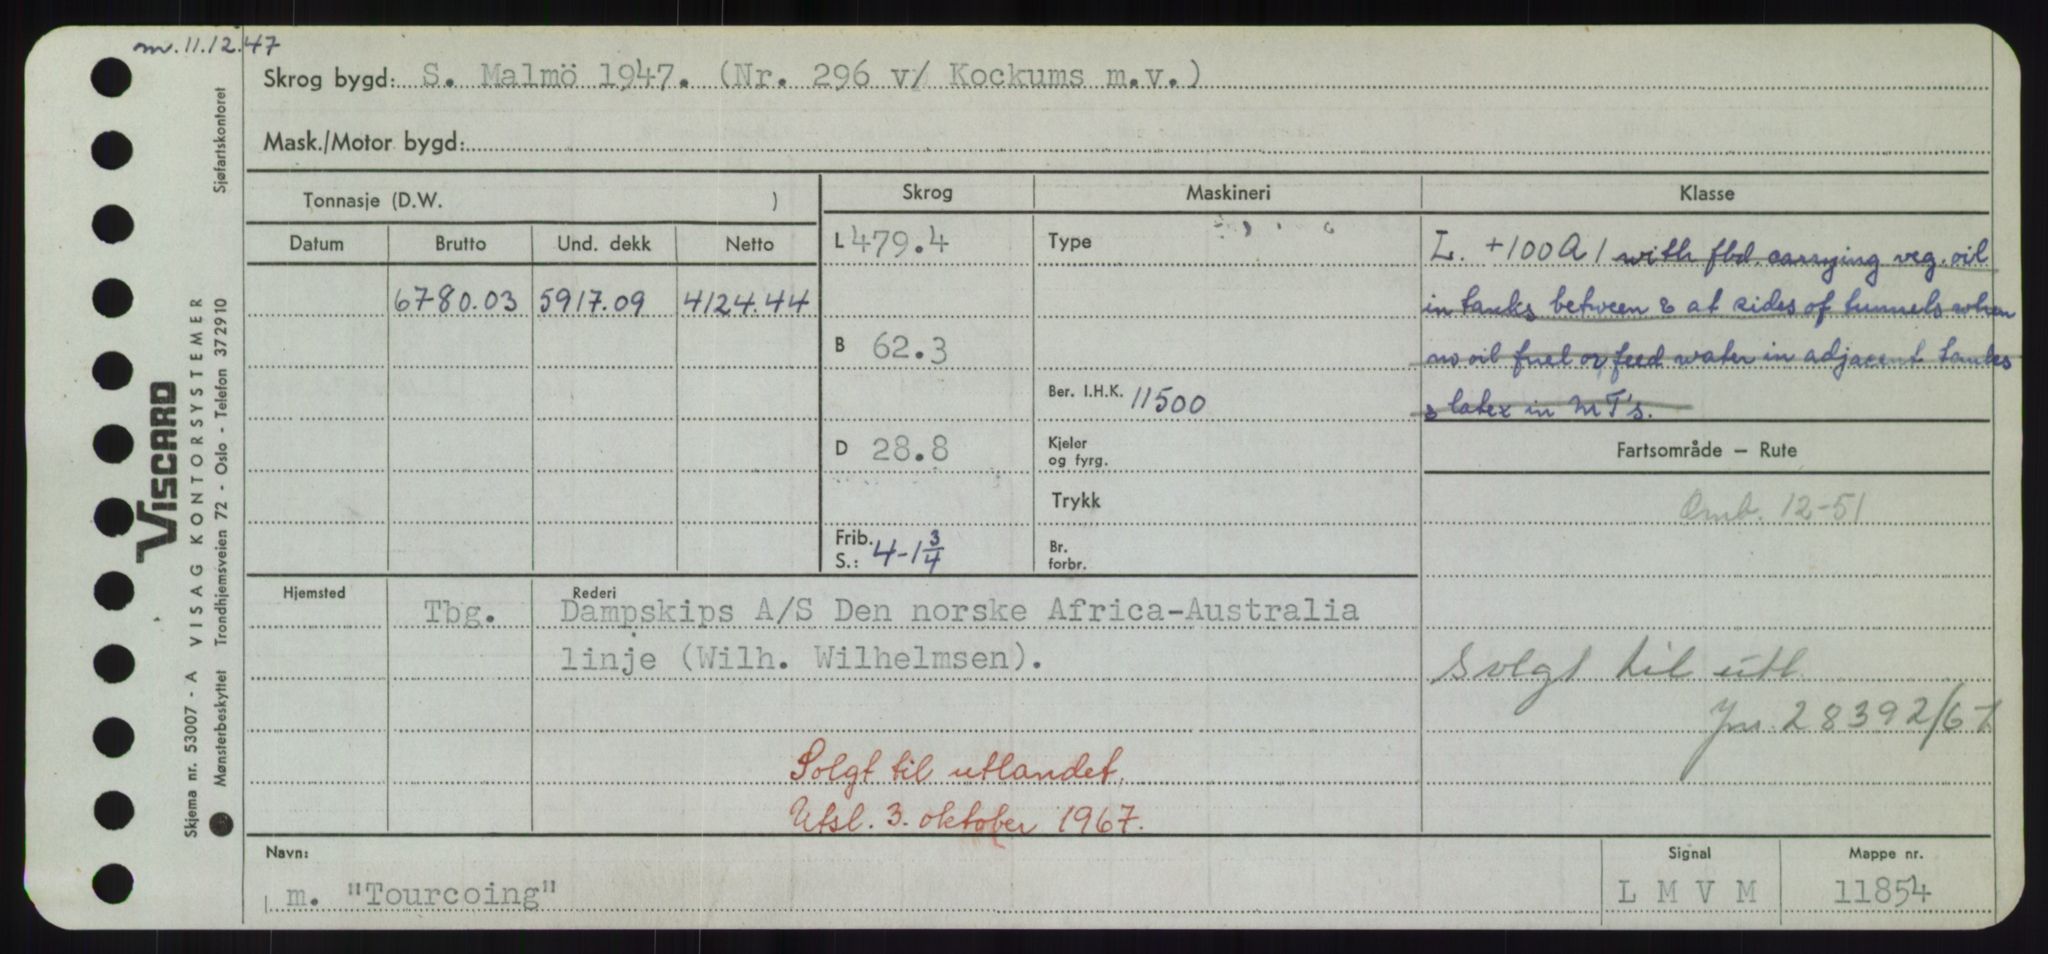 m. 11.12.47
Skrog bygd: S. Malmö 1947. (Nr. 296 v/ Kockums m.v.)
Mask./Motor bygd:
Tonnasje (D.W. )
Datum Brutto Und. dekk Netto
6780.03 5917.09 4124.44
Skrog
L 479.4
B 62.3
D 28.8
Frib. S.: 4-1 3/4
Maskineri
Type
Ber. I.H.K. 11500
Kjeler
og fyrg.
Trykk
Br.
forbr.
Klasse
L. +100A1 with fbd. carrying veg. oil
in tanks between & at sides of tunnels when
no oil fuel or feed water in adjacent tanks
& latex in MT's.
Fartsområde – Rute
Omb. 12-51
Solgt til utl.
Jnr. 28392/67
Hjemsted Tbg.
Rederi
Dampskips A/S Den norske Africa-Australia
linje (Wilh. Wilhelmsen).
Solgt til utlandet.
Utsl. 3. oktober 1967.
Navn:
m. "Tourcoing"
Signal
L M V M
Mappe nr.
11854
VISCARD
Skjema nr. 53007 - A VISAG KONTORSYSTEMER
Mønsterbeskyttet Trondhjemsveien 72 - Oslo - Telefon 372910 Sjøfartskontoret